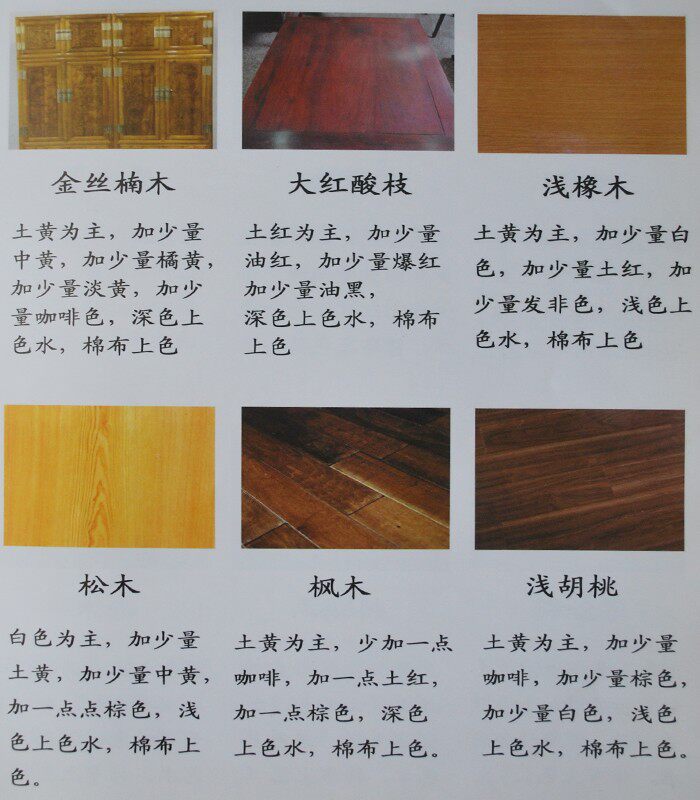 金丝楠木
土黄为主，加少量
中黄，加少量橘黄，
加少量淡黄，加少
量咖啡色，深色上
色水，棉布上色
大红酸枝
土红为主，加少量
油红，加少量爆红
加少量油黑，
深色上色水，棉布
上色
浅橡木
土黄为主，加少量白
色，加少量土红，加
少量发非色，浅色上
色水，棉布上色
松木
白色为主，加少量
土黄，加少量中黄，
加一点点棕色，浅
色上色水，棉布上
色。
枫木
土黄为主，少加一点
咖啡，加一点土红，
加一点棕色，深色
上色水，棉布上色。
浅胡桃
土黄为主，加少量
咖啡，加少量棕色，
加少量白色，浅色
上色水，棉布上色。